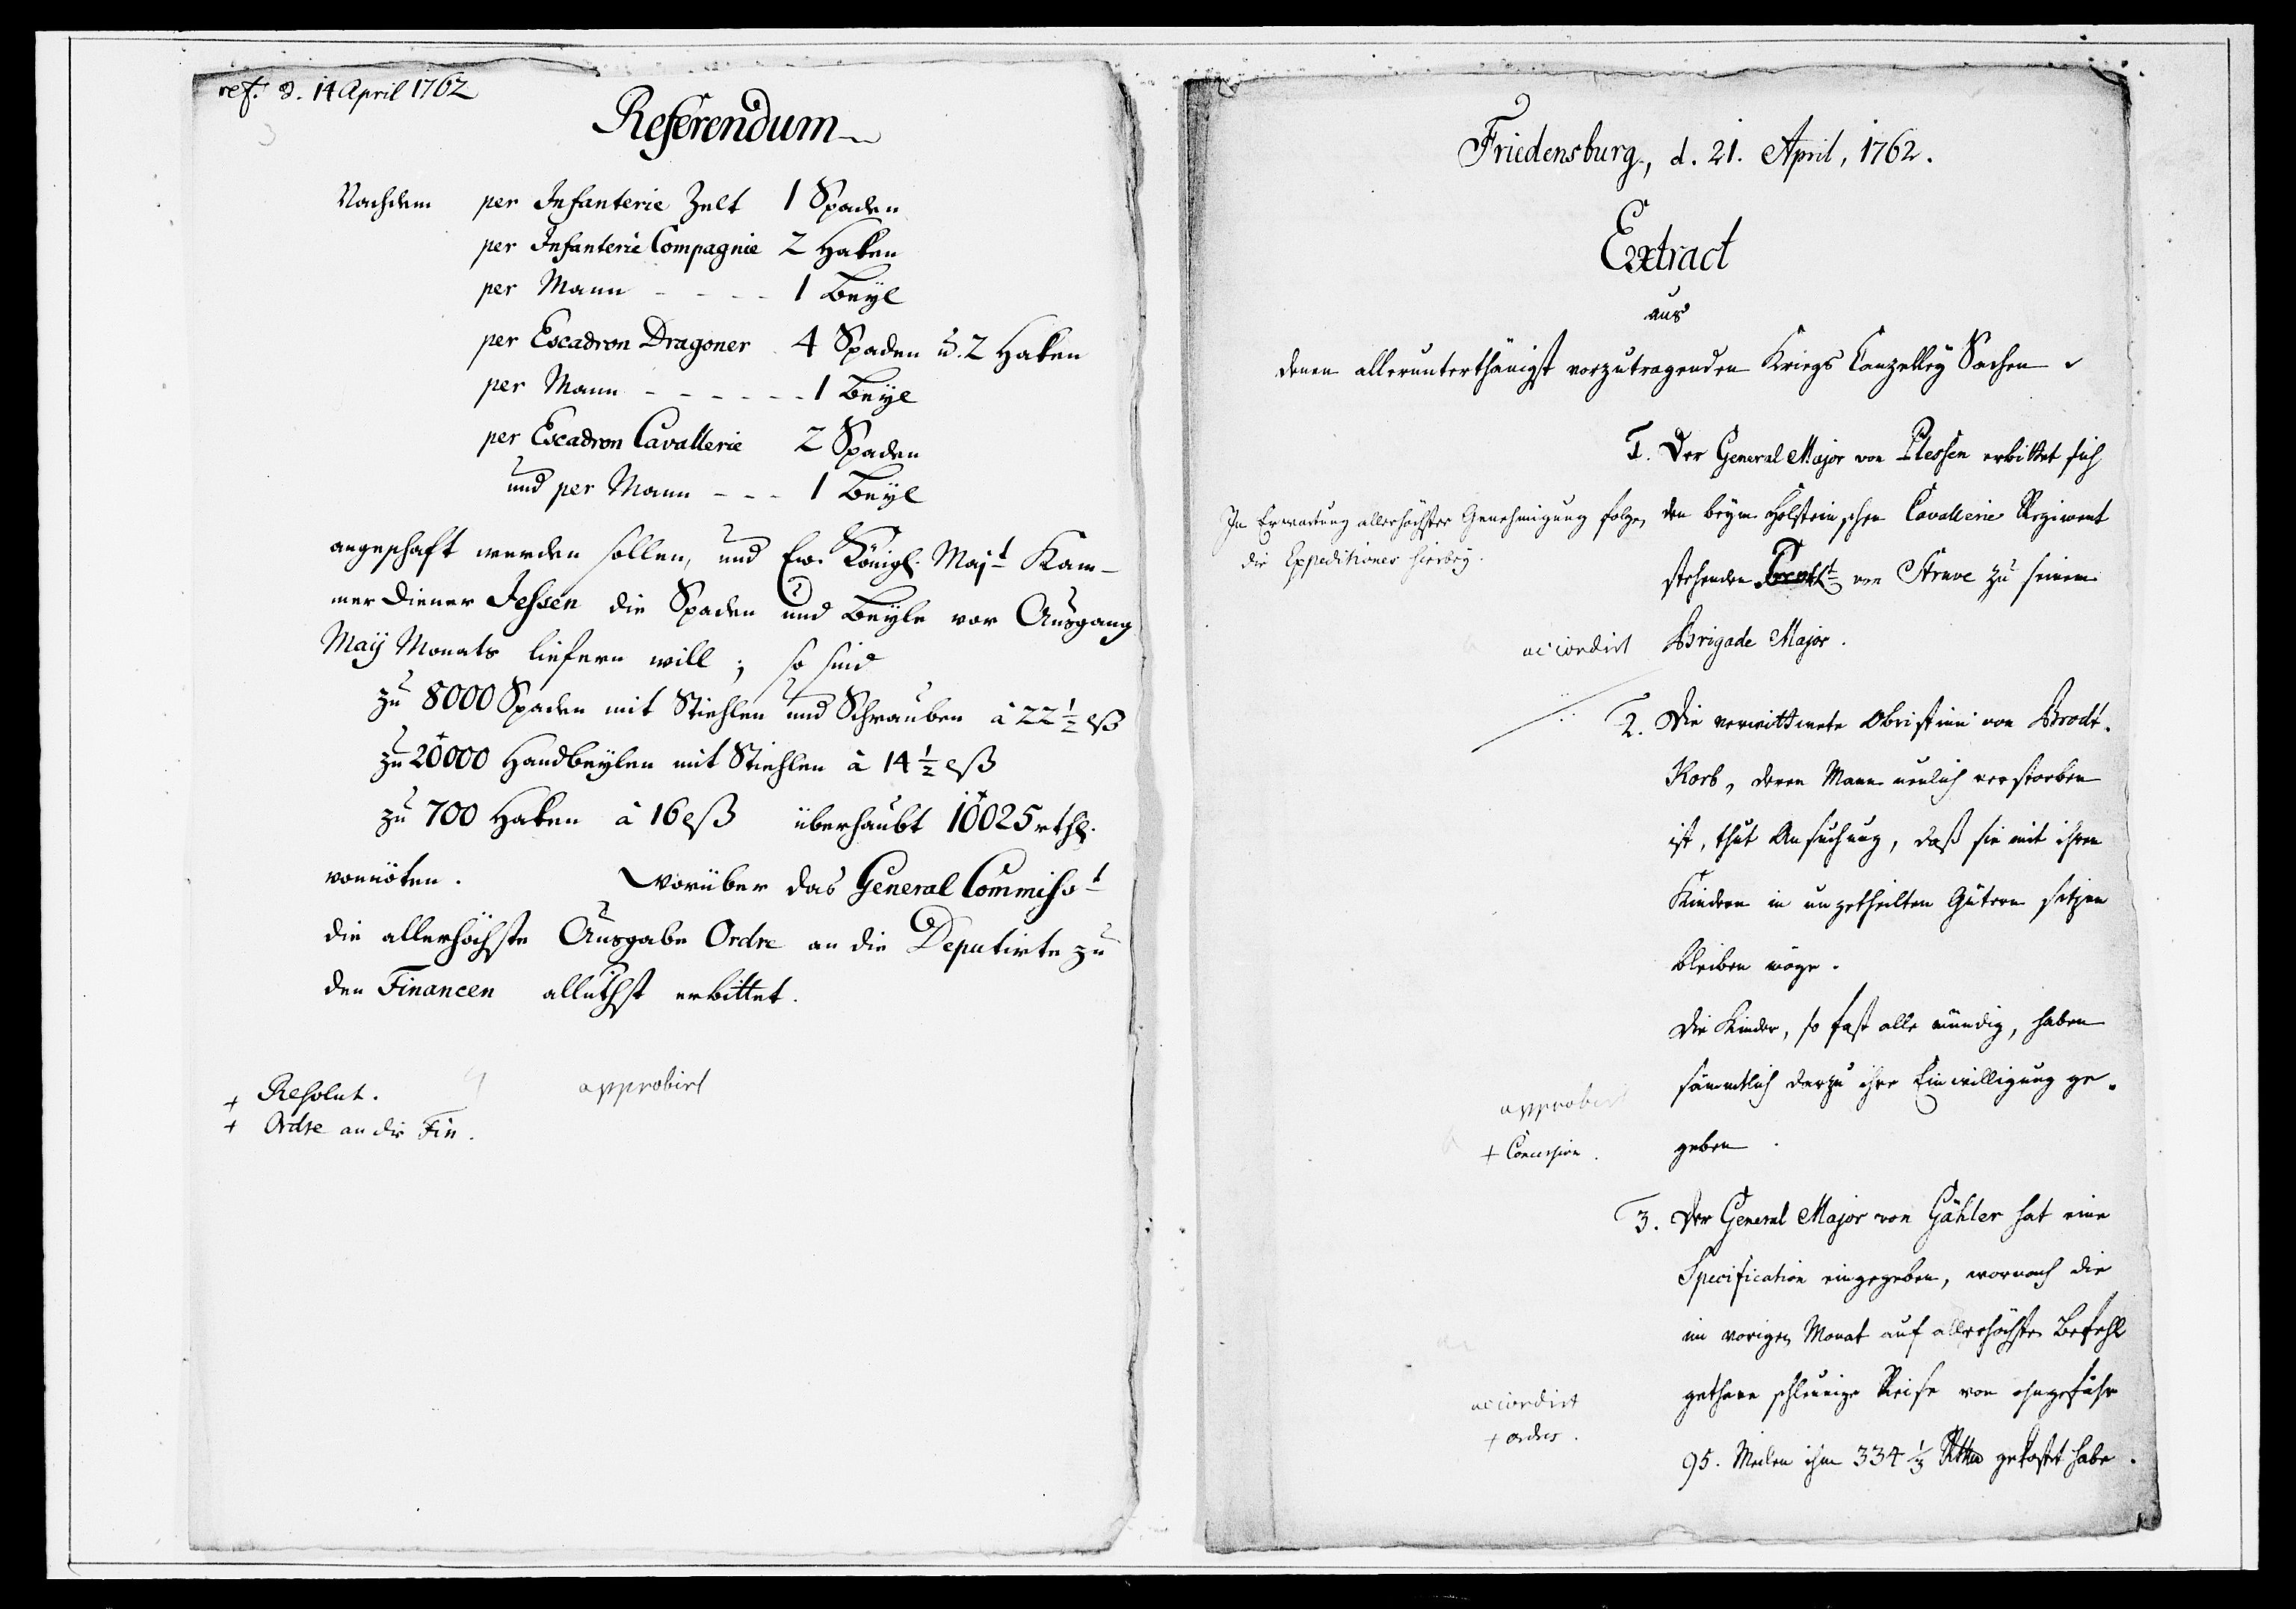 ref. d. 14 April 1762
Referendum
Nachdem per Infanterie Zelt 1 Spaden
per Infanterie Compagnie 2 Haken
per Mann - - - - 1 Beÿl
per Escadron Dragoner 4 Spaden u. 2 Haken
per Mann - - - - - - 1 Beÿl
per Escadron Cavallerie 2 Spaden
und per Mann - - - 1 Beÿl
angeschaft werden sollen, und Ew. Königl. Majt Kam-
mer Diener Jessen die Spaden und Beÿle vor Ausgang
Maÿ Monats liefern will; so sind
zu 8000 Spaden mit Stiehlen und Schrauben à 22 1/2 lß
zu 20000 Handbeÿlen mit Stiehlen à 14 1/2 lß
zu 700 Haken à 16 lß überhaubt 10025 rthl.
vonnöten. Worüber das General Commisst
die allerhöchste Ausgabe Ordre an die Deputirte zu
den Financen alluthst erbittet.
approbirt
+ Resolut.
+ Ordre an die Fin.
Friedensburg, d. 21. April, 1762.
Extract
aus
denen allerunterthänigst vorzutragenden Kriegs Canzelleÿ Sachen
1. Der General Major von Plessen erbittet sich
den beÿm Holsteinschen Cavallerie Regiment
stehenden von Struve zu seinem
Brigade Major.
In Erwartung allerhöchster Genehmigung folgen
die Expeditiones hierbeÿ.
accordirt
2. Die verwittwete Obristinn von Brodt-
Korb, deren Mann neulich verstorben
ist, thut Ansuchung, daß sie mit ihren
Kindern in ungetheilten Gütern sitzen
bleiben möge.
Die Kinder, so fast alle mündig, haben
sämmtlich darzu ihre Einwilligung ge-
geben.
approbirt
+ Concession.
3. Der General Major von Gähler hat eine
Specification eingegeben, wornach die
im vorigen Monat auf allerhöchsten Befehl
gethane schleunige Reise von ohngefähr
95. Meilen ihm 334 1/3 Rthlr gekostet habe.
accordirt
+ ordres.